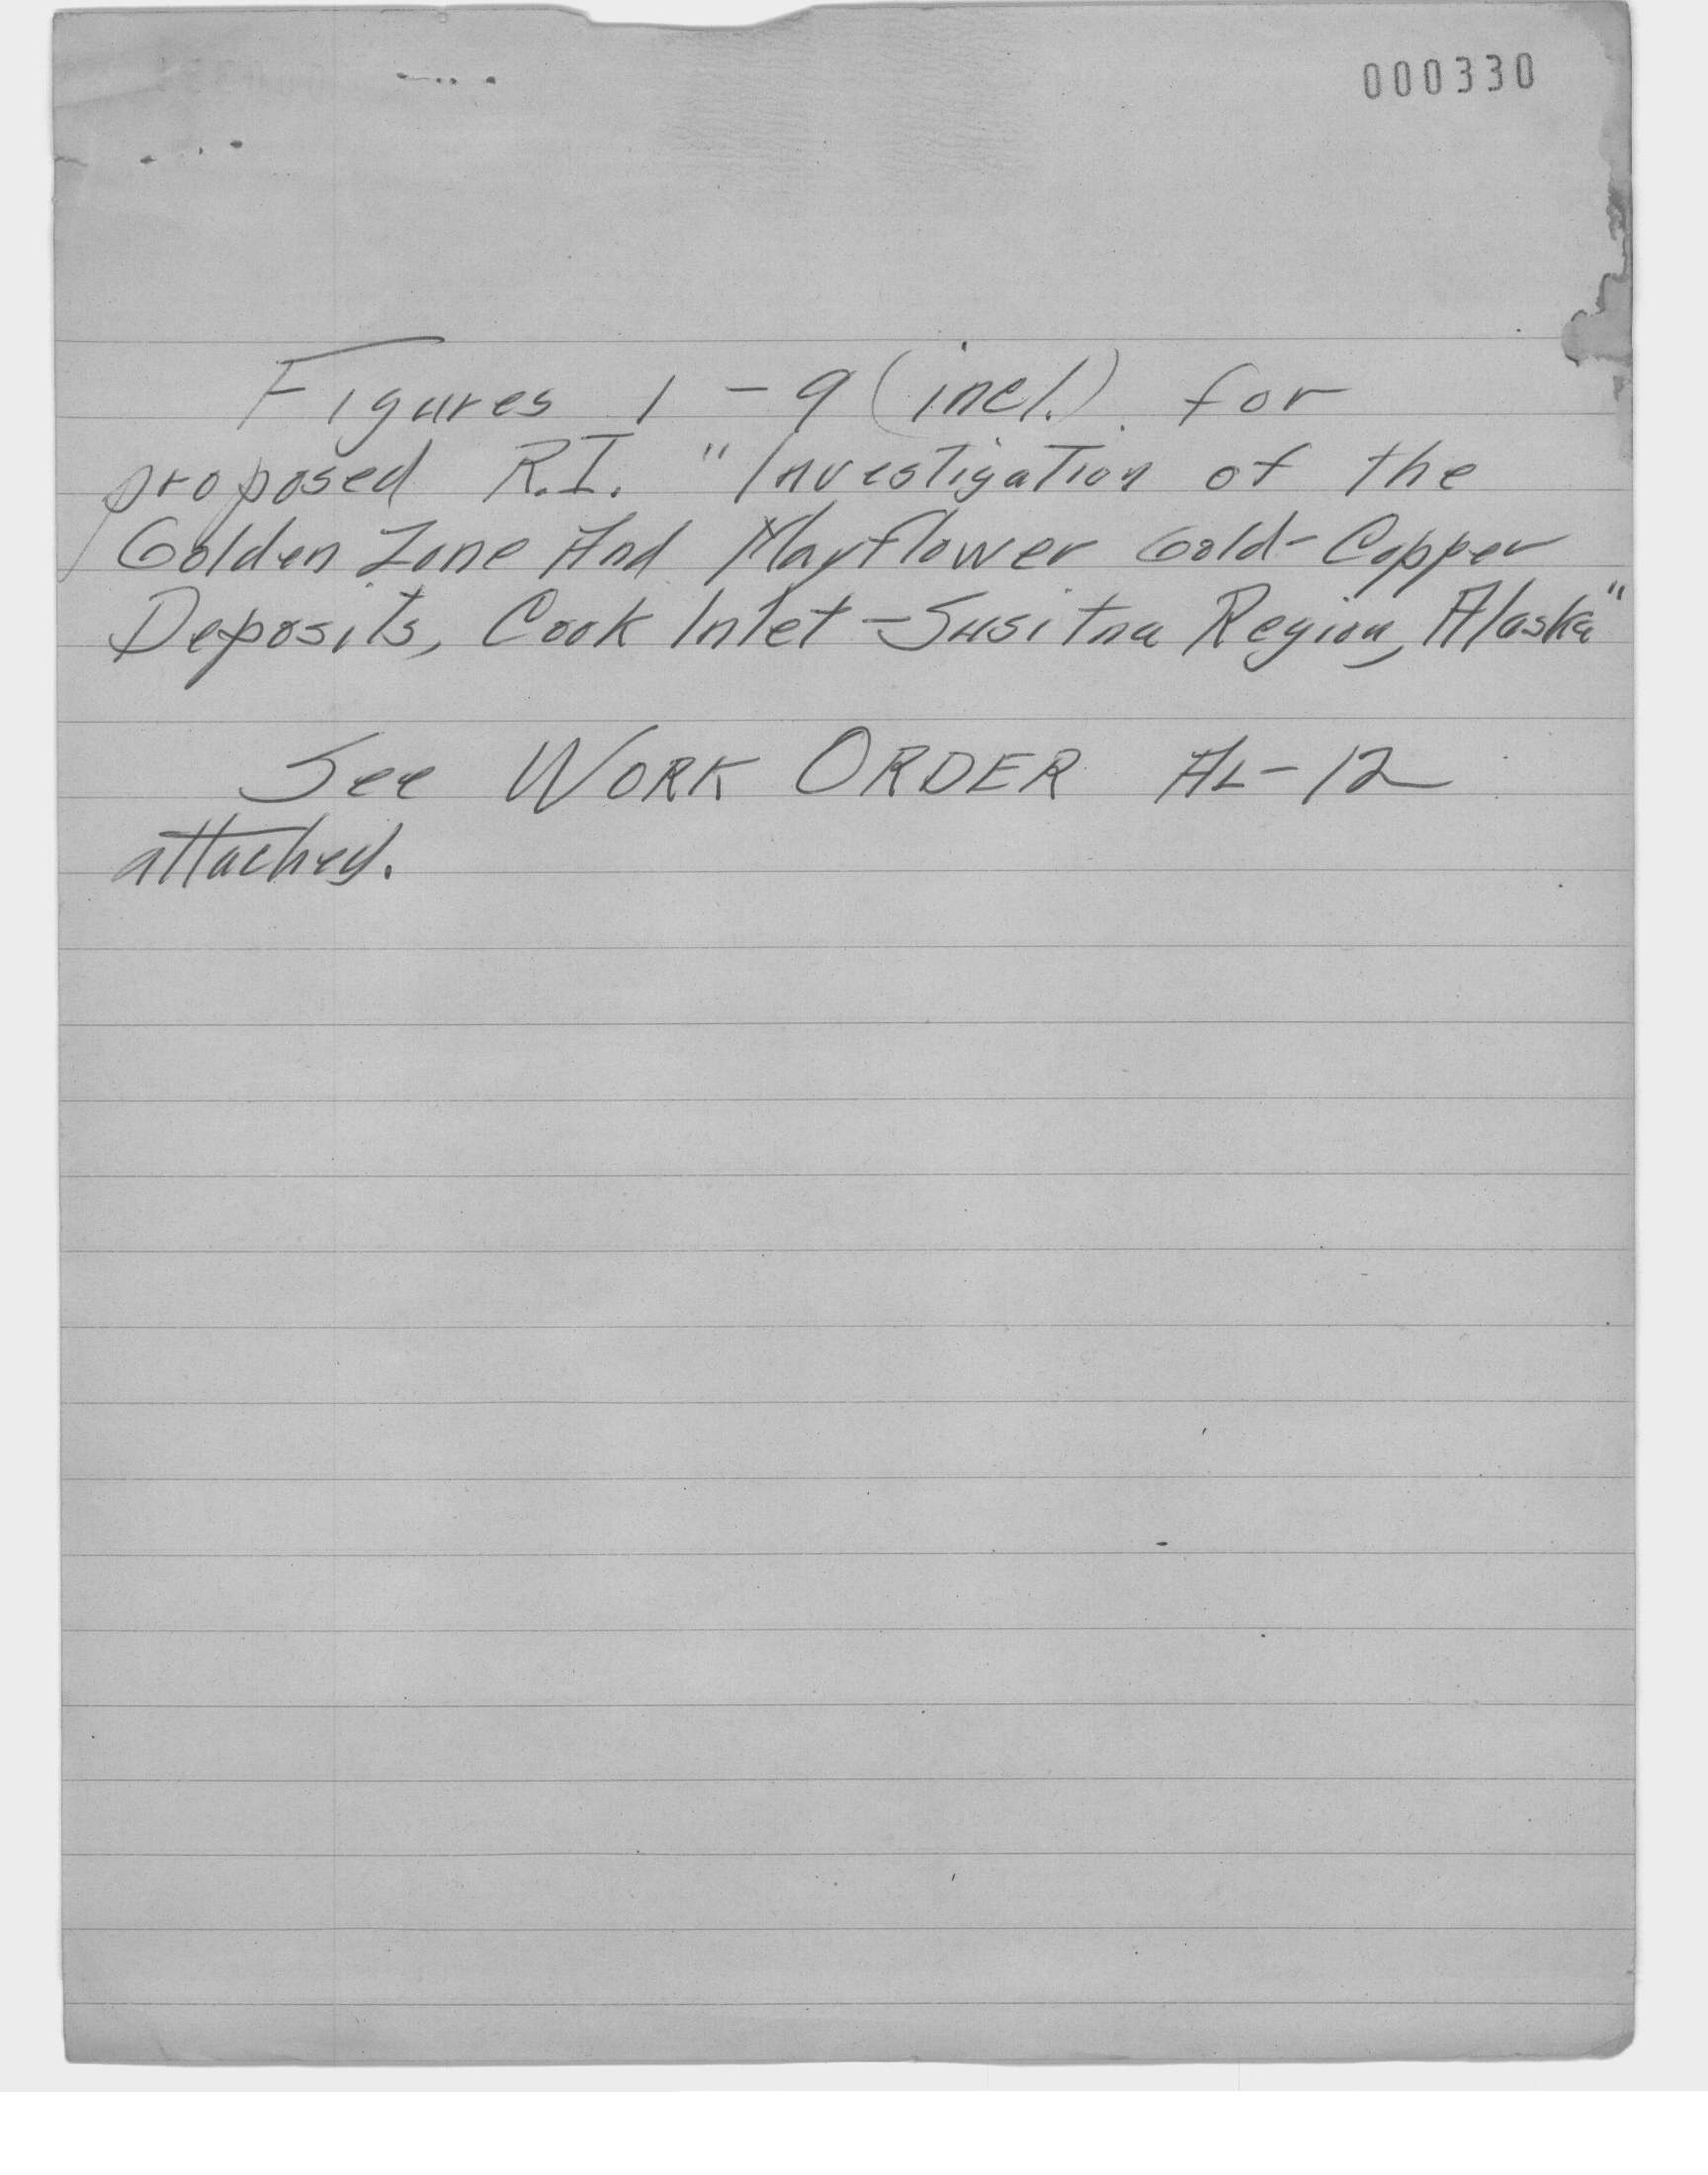 000330
Figures 1 - 9 (incl.) for
proposed R.I. "Investigation of the
Golden Zone And Mayflower Gold-Copper
Deposits, Cook Inlet-Susitna Region, Alaska"
See WORK ORDER AL-12
attached.